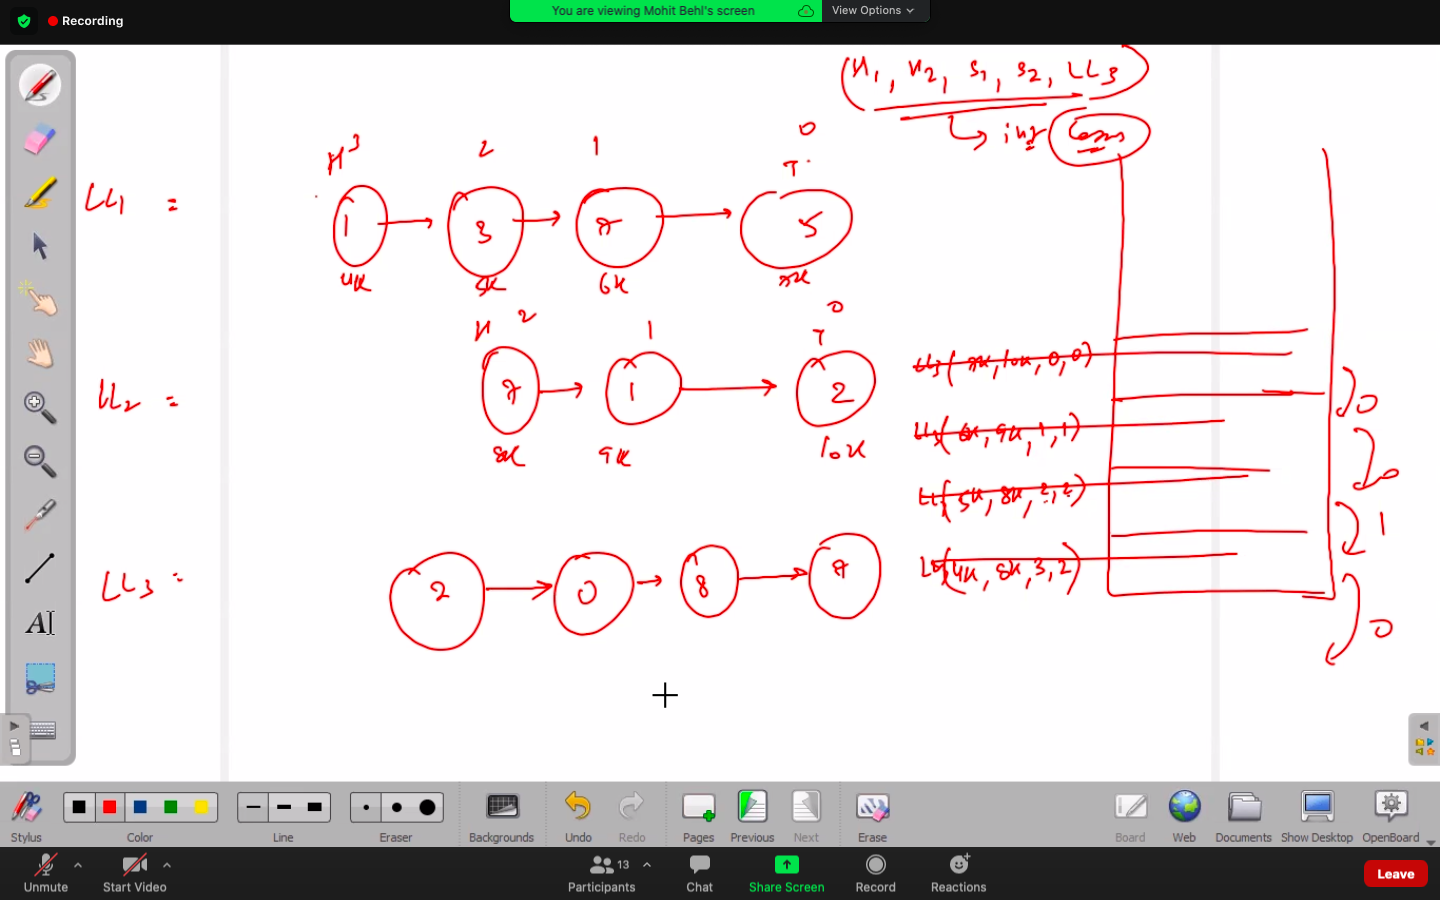 Recording
You are viewing Mohit Behl's screen
View Options
(H1, H2, S1, S2, LL3)
int
H 3 2 1 0
T
LL1 =
1 3 7 5
4K 5K 6K 7K
H 2 1 0
T
LL2 =
7 1 2
8K 9K 10K
LL3(7K, 10K, 0, 0)
LL3(6K, 9K, 1, 1)
LL3(5K, 8K, 2, 2)
LL3(4K, 8K, 3, 2)
0
0
1
0
LL3 =
2 0 8 7
AI
Stylus
Color
Line
Eraser
Backgrounds
Undo
Redo
Pages
Previous
Next
Erase
Board
Web
Documents
Show Desktop
OpenBoard
Unmute
Start Video
13
Participants
Chat
Share Screen
Record
Reactions
Leave